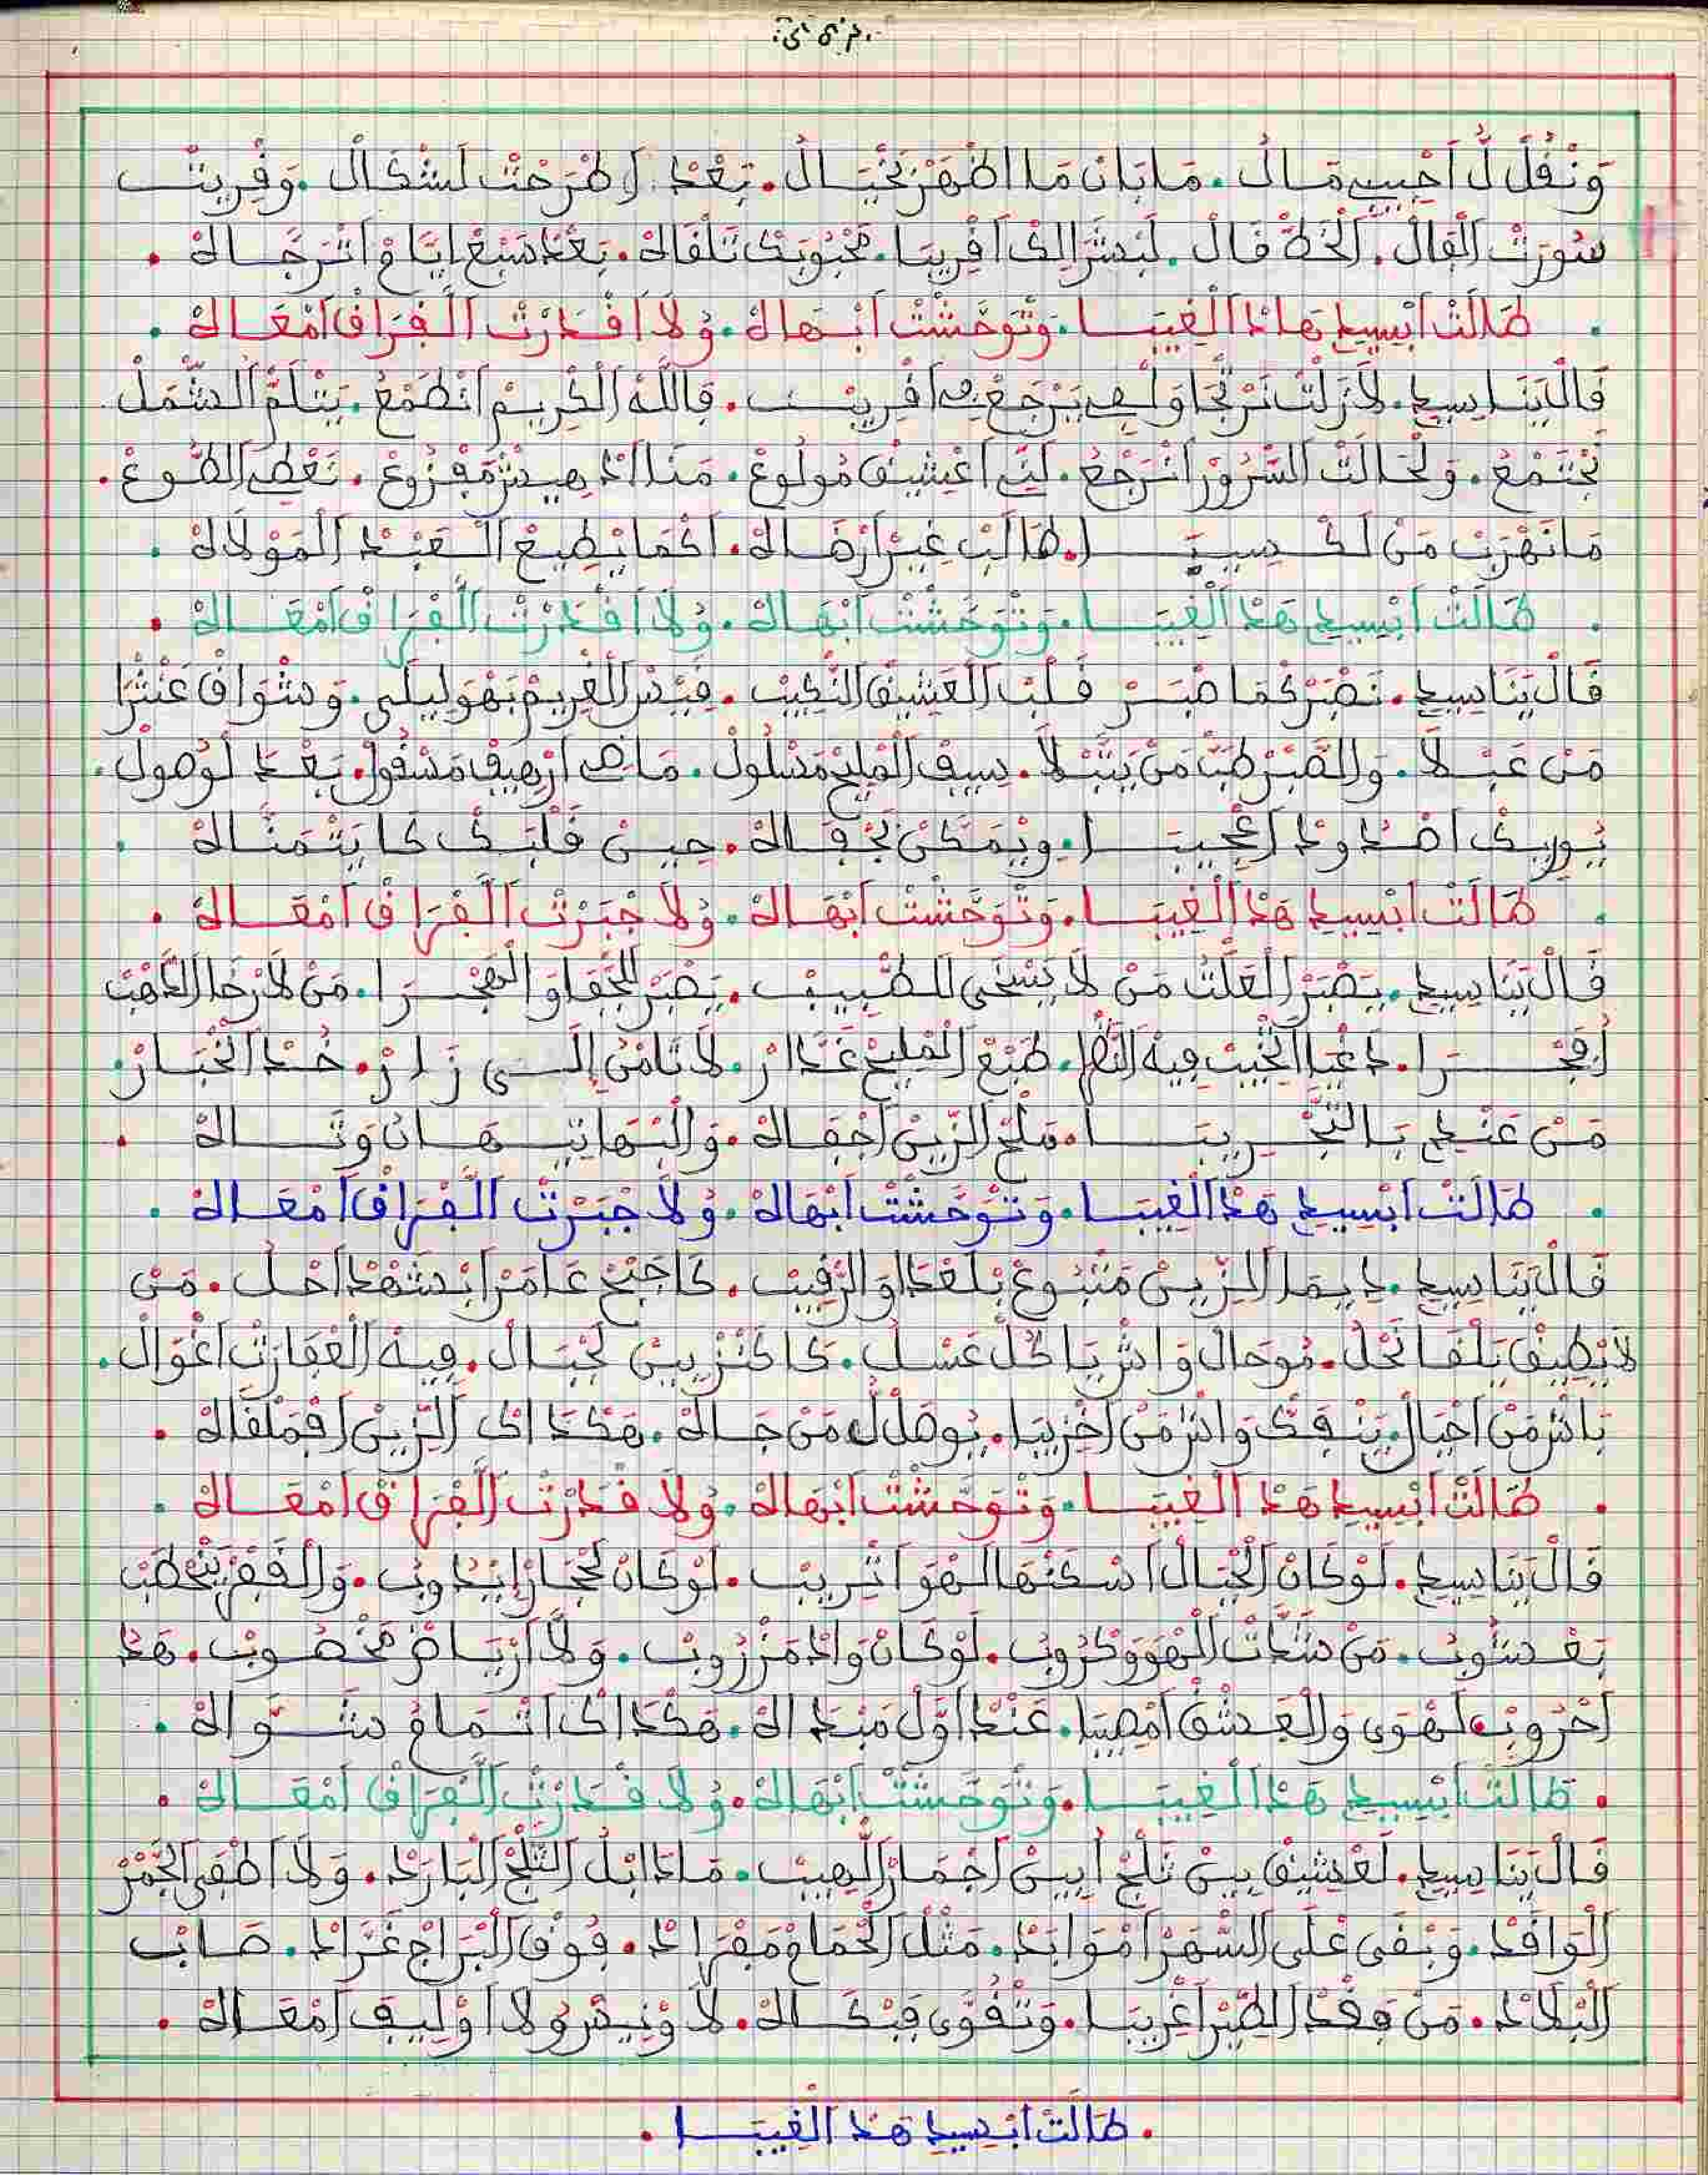 وَنْقُلْ لُ أَحْبِيبِ مَالُ . مَا بَانْ مَا اظْهَرْ بَخْيَالُ . بَعْدْ اطْرَحْتْ لَشْكَالْ . وَقْرِيتْ
سُورَتْ الْفَالْ . الْخَطْ قَالْ . لَبْشَرْ الِكْ اقْرِيبَا . مَحْبُوبَكْ تَلْقَاهْ . بَعْدْ سَبْعْ ايَّامْ اتْرَجَاهْ .
. طَالَتْ ابْسِيدِ هَادْ الْغِيبَا . وَتْوَحَّشْتْ ابْهَاهْ . وُلَا اقْدَرْتْ الْفْرَاقْ امْعَاهْ .
قَالْ يَنَا سِيدِ . لَازَلْتْ نَرْجَا وَلْفِ يَرْجَعْ لِ اقْرِيبْ . فَاللَّهْ الْكْرِيمْ انْطَمْعُ . يَتْلَمّْ الشّْمَلْ
نَجْتَمْعُ . وَلْحَالَتْ السّْرُورْ انْرَجْعُ . لَنِّ اعْشِيقْ مُولُوعْ . مَنَّا ادْهِيشْ مَفْزُوعْ . نَعْطِ الطُّوعْ .
مَا نَهْرَبْ مَنْ لَكْسِيبَا . طَالَبْ غِيرْ ارْضَاهْ . اكْمَا يْطِيعْ الْعَبْدْ الْمَوْلَاهْ .
. طَالَتْ ابْسِيدِ هَدْ الْغِيبَا . وَتْوَحَّشْتْ ابْهَاهْ . وُلَا اقْدَرْتْ الْفْرَاقْ امْعَاهْ .
قَالْ يَنَا سِيدِ . نَصْبَرْ كْمَا صْبَرْ قَلْبْ الْعَشِيقْ النّْكِيبْ . قَيْسْ الْغْرِيمْ بَهْوَ لِيلَى . وَشْوَاقْ عَنْتْرَا
مَنْ عَبْلَا . وَالصّْبَرْ طَبّْ مَنْ يَتَّبْلَا . سِيفْ الْمْلِيحْ مَسْلُولْ . مَاضِ ارْهِيفْ مَسْقُولْ . بَعْدْ لَوْصُولْ .
يُورِيكْ اصْدُودْ اعْجِيبَا . وِيْمَكّْنْ بَجْفَاهْ . حِينْ قَلْبَكْ كَا يَتْمَنَّاهْ .
. طَالَتْ ابْسِيدِ هَدْ الْغِيبَا . وَتْوَحَّشْتْ ابْهَاهْ . وُلَا جْبَرْتْ الْفْرَاقْ امْعَاهْ .
قَالْ يَنَا سِيدِ . يَصْبَرْ الْعَلّْتُ مَنْ لَا يَسْخَى للطّْبِيبْ . يَصْبَرْ لَلْجْفَا وَالْهَجْرَا . مَنْ لَا رْخَا الدّْهَبْ
. طَبْعْ الْمْلِيحْ غَدَّارْ . لَا تَامْنُ إِلَى زَارْ . خُدْ الْخْبَارْ .
مَنْ عَنْدِ بَالتَّجْرِيبَا . مَلْحْ الزِّينْ اجْفَاهْ . وَالْبْهَا تِيهَانْ وَتَاهْ .
. طَالَتْ ابْسِيدِ هَدْ الْغِيبَا . وَتْوَحَّشْتْ ابْهَاهْ . وُلَا جْبَرْتْ الْفْرَاقْ امْعَاهْ .
قَالْ يَنَا سِيدِ . دِيمَا الزِّينْ مَتْبُوعْ بَلْعْدَا وَالرّْقِيبْ . كَاجْبَحْ عَامَرْ ابْشَهْدْ احْلُ . مَنْ
لَا يْطِيقْ يَلْقَا نَحْلُ . مُوحَالْ وَاشْ يَا كُلْ عَسْلُ . كَا كَنْزْ بِينْ لَجْبَالْ . فِيهْ الْعْفَارَتْ اغْوَالْ .
بَاشْ مَنْ احْيَالْ يَنْفَكّْ وَاشْ مَنْ احْزِيبَا . يُوصَلْ لُ مَنْ جَاهْ . هَكْدَاكْ الزِّينْ افْمَلْقَاهْ .
. طَالَتْ ابْسِيدِ هَدْ الْغِيبَا . وَتْوَحَّشْتْ ابْهَاهْ . وُلَا قْدَرْتْ الْفْرَاقْ امْعَاهْ .
قَالْ يَنَا سِيدِ . لَوْكَانْ الْجْبَالْ اسْكَنْهَا لَهْوَا اتْرِيبْ . لَوْكَانْ لَحْجَارْ إِيْدُوبُ . وَالْقَفْرْ
يَعْشُوبُ . مَنْ شَدّْاتْ الْهْوَ وَكْرُوبُ . لَوْكَانْ وَادْ مَزْرُوبْ . وَلَّا ارْيَاضْ مَخْصُوبْ . هَدْ
احْرُوبْ لَهْوَى وَالْعَشْقْ امْصِيبَا . عَنْدْ اوَّلْ مَبْدَاهْ . هَكْدَاكْ اتْمَامْ شَوَّاهْ .
. طَالَتْ ابْسِيدِ هَدْ الْغِيبَا . وَتْوَحَّشْتْ ابْهَاهْ . وُلَا قْدَرْتْ الْفْرَاقْ امْعَاهْ .
قَالْ يَنَا سِيدِ . لَعْشِيقْ بِينْ تَلْجْ أُبِينْ اجْمَارْ اللّْهِيبْ . مَادَابَلْ التَّلْجْ الْبَارَدْ . وَلَا اطْفَى الْجْمَرْ
الْوَاقَدْ . وَبْقَى عْلَى السّْهَرْ امْوَابَدْ . مَثْلْ الْحْمَامْ مَفْرَادْ . فُوقْ الْبْرَاجْ غَرَّادْ . صَابْ
الْبْلَادْ . مَنْ فَقْدْ الطِّيرْ اغْرِيبَا . وَتْقَوَّى فَبْكَاهْ . لَا وْنِيسُ وُلَا اوْلِيفْ امْعَاهْ .
. طَالَتْ ابْسِيدِ هَدْ الْغِيبَا .